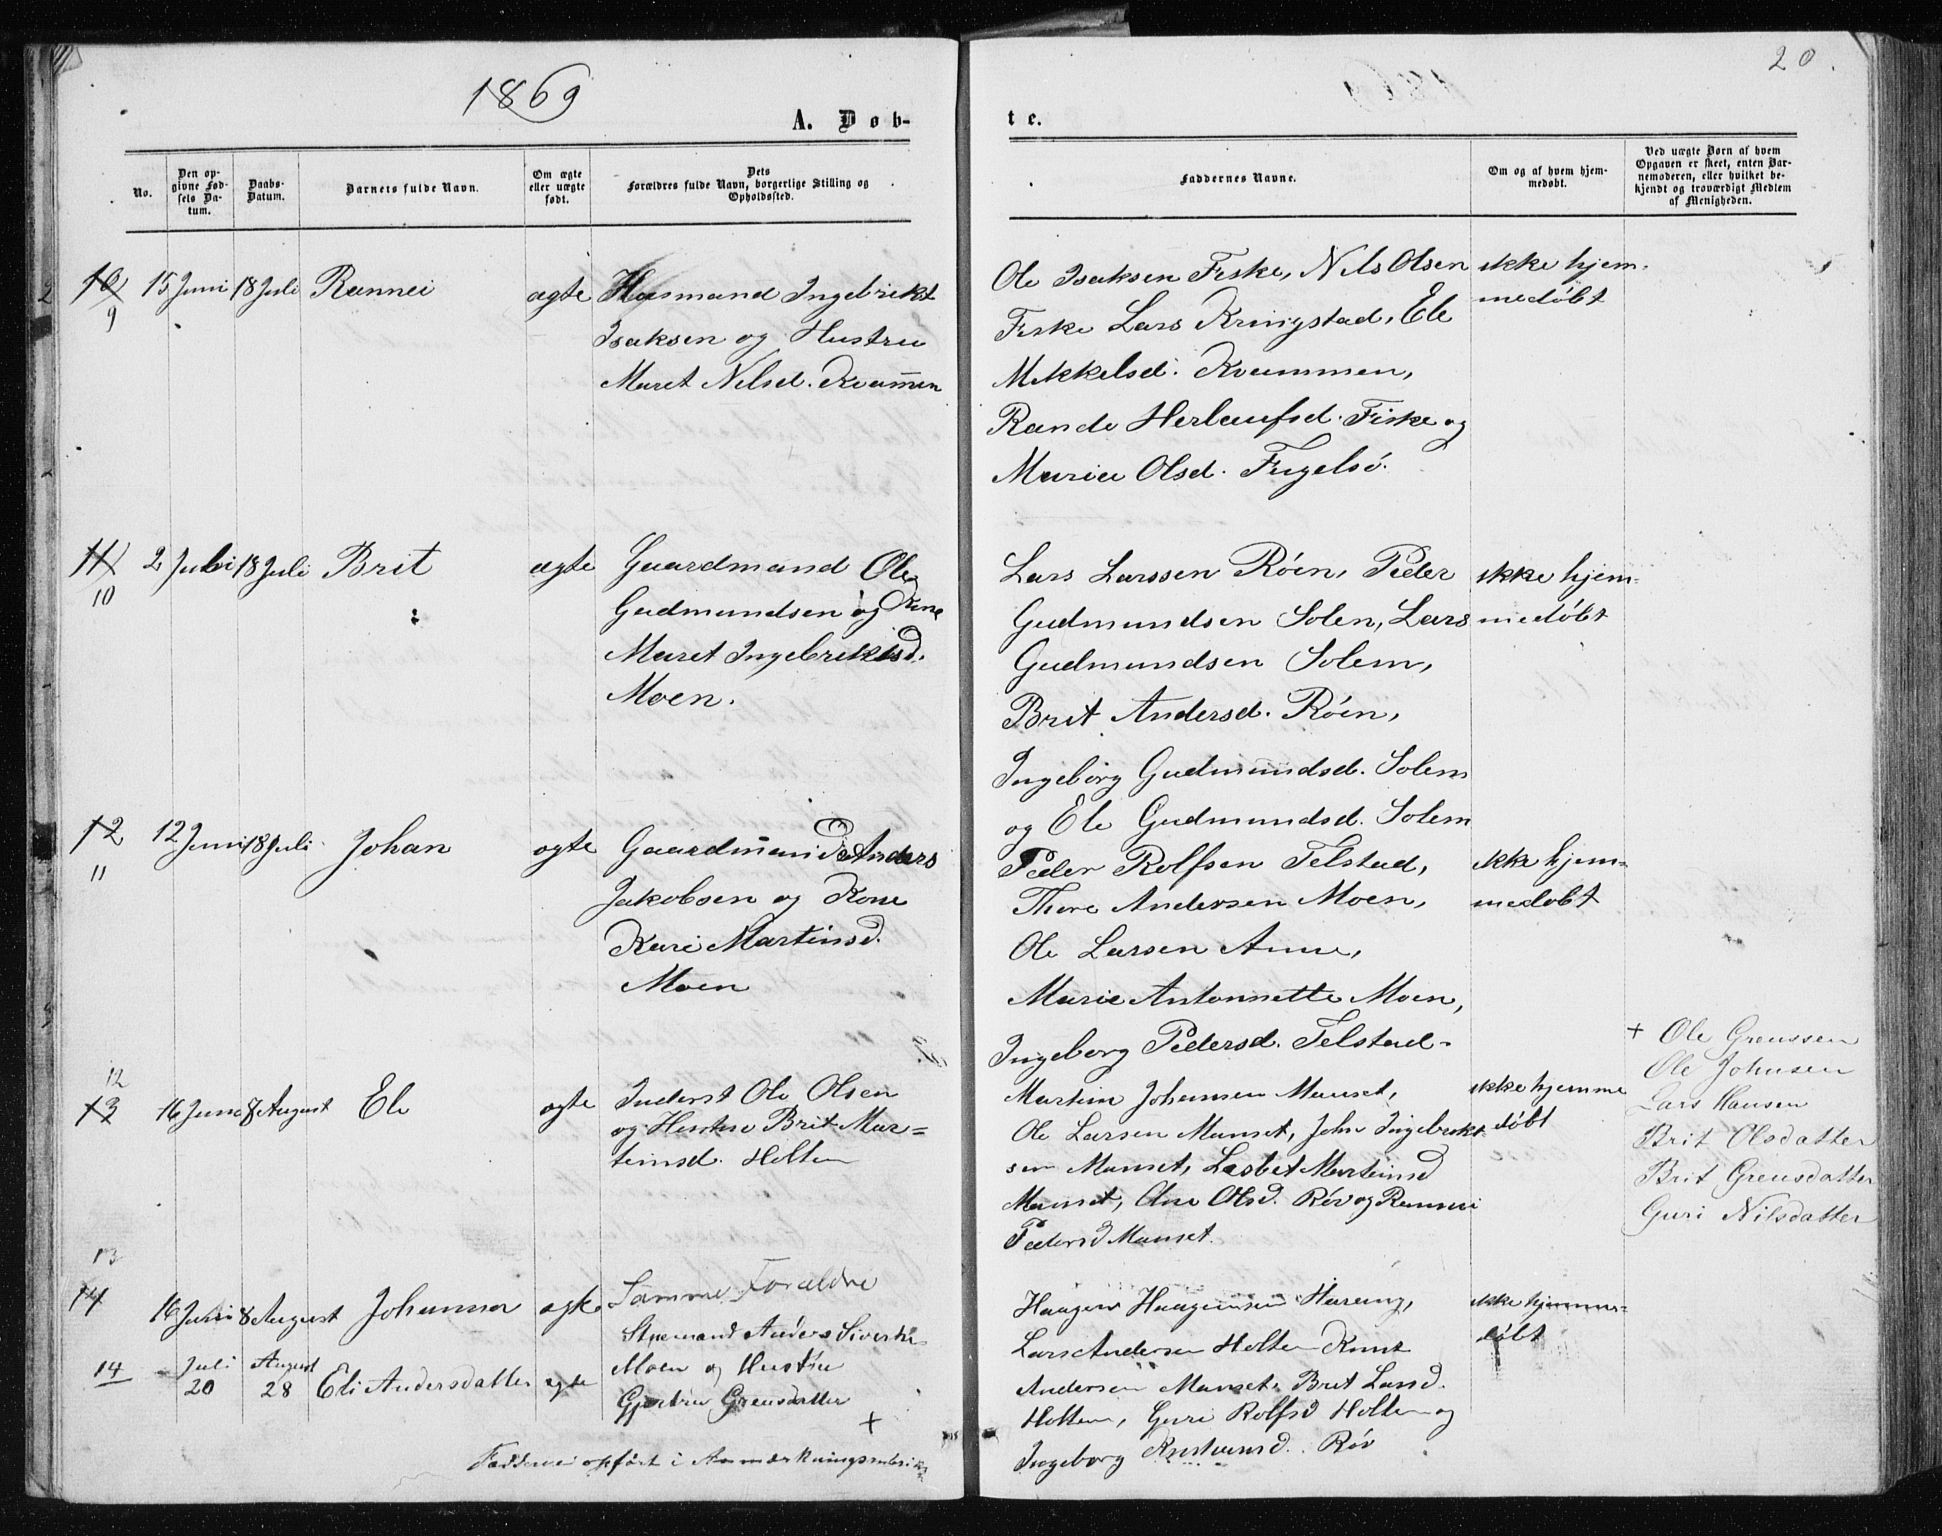 1869
20.
A. Døb-
te.
No.
Den op-
givne Fød-
sels Da-
tum.
Daabs-
Datum.
Barnets fulde Navn.
Om ægte
eller uægte
født.
Dets
Forældres fulde Navn, borgerlige Stilling og
Opholdssted.
Faddernes Navne.
Om og af hvem hjem-
medøbt.
Ved uægte Børn af hvem
Opgaven er skeet, enten Bar-
nemoderen, eller hvilket be-
kjendt og troværdigt Medlem
af Menigheden.
10
9
15 Juni 18 Juli Rannei ægte Husmand Ingebrikt
Isaksen og Hustru
Maret Nilsd. Kvammen
Ole Isaksen Fiske, Nils Olsen
Fiske Lars Kringstad, Ele
Mikkelsd. Kvammen,
Rande Herlaufsd. Fiske og
Maria Olsd. Fugelsø.
ikke hjem-
medøbt
11
10
2 Juli 18 Juli Brit ægte Gaardmand Ole
Gudmundsen og Kone
Maret Ingebriktsd.
Moen.
Lars Larssen Røen, Peder
Gudmundsen Solem, Lars
Gudmundsen Solem,
Brit Andersd. Røen,
Ingeborg Gudmundsd. Solem
og Ele Gudmundsd. Solem
ikke hjem-
medøbt
12
11
12 Juni 18 Juli Johan ægte Gaardmand Anders
Jakobsen og Kone
Kari Martinsd.
Moen
Peder Rolfsen Telstad,
Thore Andersen Moen,
Ole Larsen Aune,
Marie Antonnette Moen,
Ingeborg Pedersd. Telstad-
ikke hjem-
medøbt
12
13
16 Juni 8 August Ele ægte Inderst Ole Olsen
og Hustru Brit Mar-
tinsd. Holten
Martin Johansen Manset,
Ole Larsen Manset, John Ingebrikt
sen Manset, Lisbet Martinsd
Manset, Ane Olsd. Røv og Rannei
Pedersd Manset.
ikke hjemme
døbt
13
14
16 Juni 8 August Johanna ægte Samme Forældre
Haagen Haagensen Harang,
Lars Andersen Holten Knut
Andersen Manset, Brit Larsd.
Holten, Guri Rolfsd Holten og
Ingeborg Kristiansd. Røv
ikke hjemme-
døbt
14
Juli
20
August
28
Eli Andersdatter ægte
Anders Sivertsen
Moen og Hustru
Gjertru Greusdatter
+
Faddere opført i Anmærkningsrubrikk
+ Ole Greussen
Ole Johnsen
Lars Hansen
Brit Olsdatter
Brit Greusdatter
Guri Nilsdatter